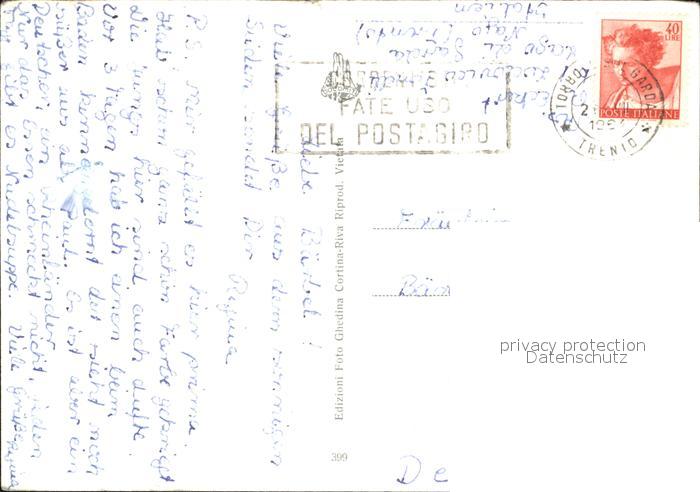 Liebe Bärbel!
Viele Grüße aus dem sonnigen
Süden sendet Dir
Regina
P.S. Mir gefällt es hier prima.
Hab schon ganz schön Farbe gekriegt
Die Jungs hier sind auch dufte.
Vor 3 Tagen hab ich einen beim
Baden kennengelernt der sieht noch
süßer aus als Paul. Es ist aber ein
Deutscher, ein Rheinländer
Nur das Essen schmeckt nicht, jeden
Tag gibt es Nudelsuppe. Viele Grüße Regina
Lago di Garda
Nago (Trento)
Italien
FATE USO
DEL POSTAGIRO
40
LIRE
POSTE ITALIANE
TORBOLE GARDA
TRENTO
Edizioni Foto Ghedina Cortina-Riva Riprod. Vietata
399
Bär
De
privacy protection
Datenschutz